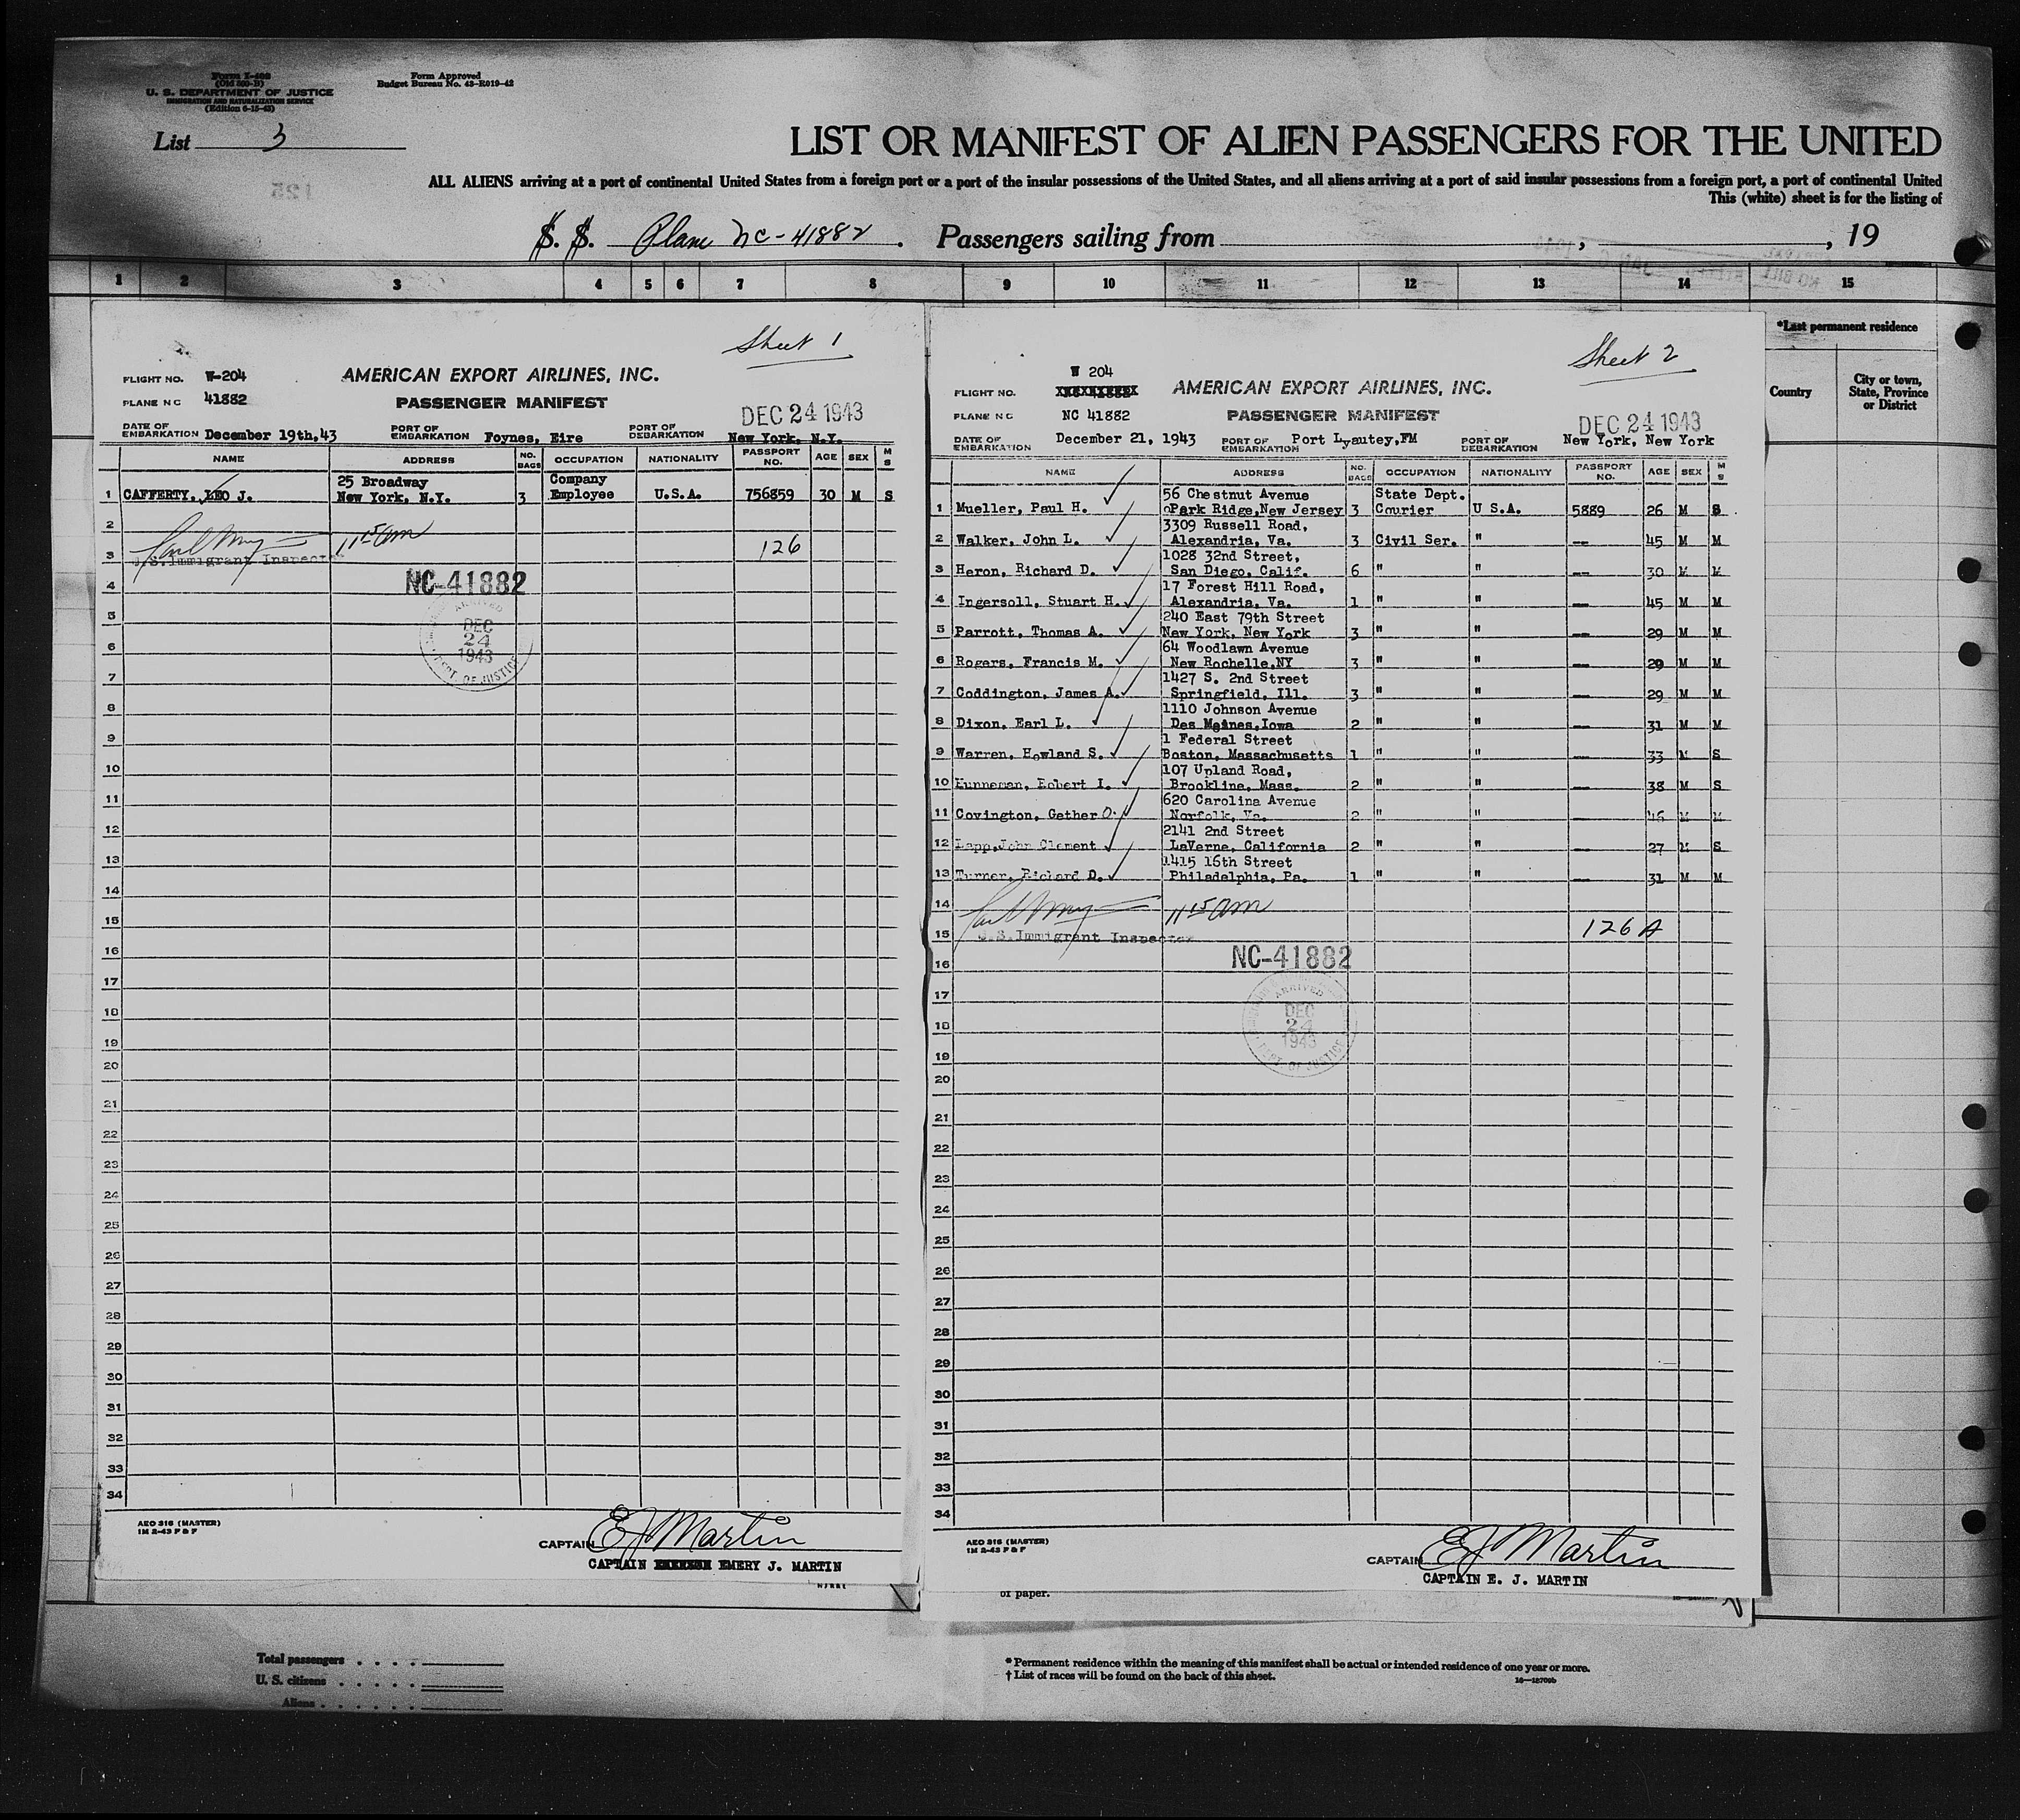 Form I-400
(Old 500-B)
U. S. DEPARTMENT OF JUSTICE
IMMIGRATION AND NATURALIZATION SERVICE
(Edition 6-15-43)
Form Approved
Budget Bureau No. 43-R019-42
List 3
125
LIST OR MANIFEST OF ALIEN PASSENGERS FOR THE UNITED
ALL ALIENS arriving at a port of continental United States from a foreign port or a port of the insular possessions of the United States, and all aliens arriving at a port of said insular possessions from a foreign port, a port of continental United
This (white) sheet is for the listing of
S. S. Plane NC-41882 . Passengers sailing from , , 19
1 2 3 4 5 6 7 8 9 10 11 12 13 14 15
*Last permanent residence
Country
City or town, State, Province or District
Sheet 1
FLIGHT NO. W-204
AMERICAN EXPORT AIRLINES, INC.
PLANE NC 41882
PASSENGER MANIFEST
DEC 24 1943
DATE OF EMBARKATION December 19th,43 PORT OF EMBARKATION Foynes, Eire PORT OF DEBARKATION New York, N.Y.
NAME ADDRESS NO. BAGS OCCUPATION NATIONALITY PASSPORT NO. AGE SEX M S
1 CAFFERTY, LEO J. 25 Broadway New York, N.Y. 3 Company Employee U.S.A. 756859 30 M S
2
3 U.S. Immigrant Inspector 11 15 am 126
4 NC-41882
5 ARRIVED
DEC
6 24
1943
7 DEPT. OF JUSTICE
8
9
10
11
12
13
14
15
16
17
18
19
20
21
22
23
24
25
26
27
28
29
30
31
32
33
34
AEO 316 (MASTER)
1M 2-43 P & F
CAPTAIN E J Martin
CAPTAIN EMERY J. MARTIN
Sheet 2
W 204
FLIGHT NO.
AMERICAN EXPORT AIRLINES, INC.
PLANE NC NC 41882
PASSENGER MANIFEST
DEC 24 1943
DATE OF EMBARKATION December 21, 1943 PORT OF EMBARKATION Port Lyautey,FM PORT OF DEBARKATION New York, New York
NAME ADDRESS NO. BAGS OCCUPATION NATIONALITY PASSPORT NO. AGE SEX M S
1 Mueller, Paul H. 56 Chestnut Avenue Park Ridge,New Jersey 3 State Dept. Courier U S.A. 5889 26 M S
2 Walker, John L. 3309 Russell Road, Alexandria, Va. 3 Civil Ser. " — 45 M M
3 Heron, Richard D. 1028 32nd Street, San Diego, Calif. 6 " " — 30 M M
4 Ingersoll, Stuart H. 17 Forest Hill Road, Alexandria, Va. 1 " " — 45 M M
5 Parrott, Thomas A. 240 East 79th Street New York, New York 3 " " — 29 M M
6 Rogers, Francis M. 64 Woodlawn Avenue New Rochelle,NY 3 " " — 29 M M
7 Coddington, James A. 1427 S. 2nd Street Springfield, Ill. 3 " " — 29 M M
8 Dixon, Earl L. 1110 Johnson Avenue Des Moines,Iowa 2 " " — 31 M M
9 Warren, Howland S. 1 Federal Street Boston, Massachusetts 1 " " — 33 M S
10 Hunneman, Robert I. 107 Upland Road, Brookline, Mass. 2 " " — 38 M S
11 Covington, Gether O. 620 Carolina Avenue Norfolk, Va. 2 " " — 46 M M
12 Lapp,John Clement 2141 2nd Street LaVerne, California 2 " " — 27 M S
13 Turner, Richard D. 1415 16th Street Philadelphia, Pa. 1 " " — 31 M M
14 11 15 am
15 U.S. Immigrant Inspector 126 A
16 NC-41882
17 ARRIVED
DEC
18 24
1943
19 DEPT. OF JUSTICE
20
21
22
23
24
25
26
27
28
29
30
31
32
33
34
AEO 316 (MASTER)
1M 2-43 P & F
CAPTAIN E J Martin
CAPTAIN E. J. MARTIN
of paper.
Total passengers . . . .
U. S. citizens . . . . .
Aliens . . . . . .
* Permanent residence within the meaning of this manifest shall be actual or intended residence of one year or more.
† List of races will be found on the back of this sheet.